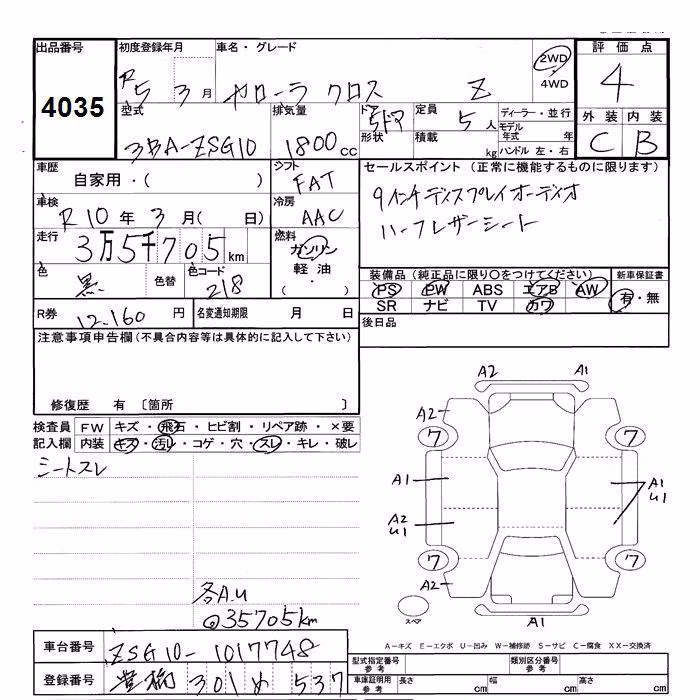 出品番号
4035
初度登録年月
R5 3月
車名・グレード
カローラ クロス Z
2WD
・
4WD
評価点
4
型式
3BA-ZSG10
排気量
1800 cc
ドア
5ドア
形状
定員
5人
積載
kg
ディーラー・並行
モデル年式 年
ハンドル 左・右
外装 内装
C B
車歴
自家用・( )
シフト
FAT
セールスポイント (正常に機能するものに限ります)
9インチディスプレイオーディオ
ハーフレザーシート
車検
R10年 3月( 日)
冷房
AAC
走行
3万5千705km
燃料
ガソリン
軽油
・( )
色
黒
色替
色コード
218
装備品 (純正品に限り○をつけてください) 新車保証書
PS PW ABS エアB AW 有・無
SR ナビ TV カワ
R券
12,160 円
名変通知期限 月 日
後日品
注意事項申告欄 (不具合内容等は具体的に記入して下さい)
修復歴 有 〔箇所 〕
検査員 FW キズ・飛石・ヒビ割・リペア跡・×要
記入欄 内装 キズ・汚レ・コゲ・穴・スレ・キレ・破レ
シートスレ
各A.U
@35705km
A2 A1
A2
7 7
A1 A1
U1
A2
U1
7 7
A2
A1
スペア
A-キズ E-エクボ U-凹み W-補修跡 S-サビ C-腐食 XX-交換済
車台番号
ZSG10-1017748
登録番号
豊橋 301 め 537
型式指定番号
参考
類別区分番号
参考
車庫証明用
参考
長さ cm 幅 cm 高さ cm